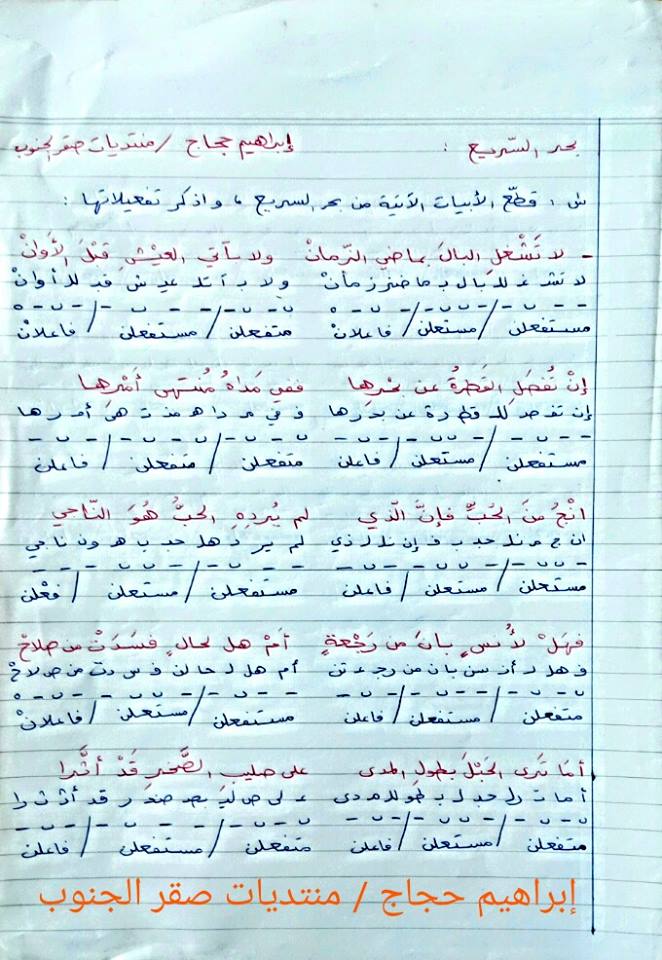 بحر السّريع : إبراهيم حجاج / منتديات صقر الجنوب
س : قطّع الأبيات الآتية من بحر السريع ، واذكر تفعيلاتها :
- لا تَشْغلِ البالَ بماضي الزّمانْ ولا بآتي العيْشِ قبْلَ الأَوانْ
لا تش غ لل با ل ب ما ضز ز مانْ ولا ب آ تل عي ش قب لل أ وانْ
- - ب - / - ب ب - / - ب - ه ب - ب - / - - ب - / - ب - ه
مستفعلن / مستعلن / فاعلانْ متفعلن / مستفعلن / فاعلانْ
إنْ تُفصَلِ القَطرةُ عن بحْرِها ففي مَداهُ مُنتهى أمْرِها
إن تف ص لل قط رة عن بح رها ف في م دا ه من ت هى أم رها
- - ب - / - ب ب - / - ب - ب - ب - / ب - ب - / - ب -
مستفعلن / مستعلن / فاعلن متفعلن / متفعلن / فاعلن
انْجُ منَ الحُبِّ فإنَّ الّذي لم يُردِهِ الحبُّ هُوَ النّاجي
ان ج م نل حب ب ف إن نل ل ذي لم ير د هل حب ب ه ون نا جي
- ب ب - / - ب ب - / - ب - - - ب - / - ب ب - / - -
مستعلن / مستعلن / فاعلن مستفعلن / مستعلن / فعْلن
فهَلْ لأُنسٍ بانَ من رَجْعةٍ أمْ هل لحالٍ فسَدَتْ من صلاحْ
ف هل ل أن سن بان من رج ع تن أم هل ل حا لن ف س دت من ص لاحْ
ب - ب - / - - ب - / - ب - - - ب - / - ب ب - / - ب - ه
متفعلن / مستفعلن / فاعلن مستفعلن / مستعلن / فاعلانْ
أمَا تَرى الحَبْلَ بطولِ المدى على صليبِ الصَّخرِ قَدْ أثّرا
أ ما ت رل حب ل ب طو لل م دى ع لى ص لي بص صخ ر قد أث ث را
ب - ب - / - ب ب - / - ب - ب - ب - / - - ب - / - ب -
متفعلن / مستعلن / فاعلن متفعلن / مستفعلن / فاعلن
إبراهيم حجاج / منتديات صقر الجنوب